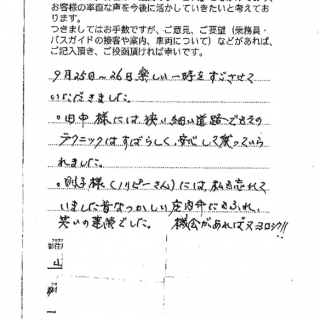 お客様の率直な声を今後に活かしていきたいと考えて
おります。
つきましてはお手数ですが、ご意見、ご要望（乗務員・
バスガイドの接客や案内、車両について）などがあれば、
ご記入頂き、ご投函頂ければ幸いです。
9月25日～26日楽しい一時をすごさせて
いただきました。
・田中様には狭い細い道路でもその
テクニックはすばらしく、安心して乗っていら
れました。
・則子様（ノリピーさん）には、私も忘れて
いました昔なつかしい庄内弁にもふれ、
笑いの連続でした。 機会があれば又ヨロシク!!